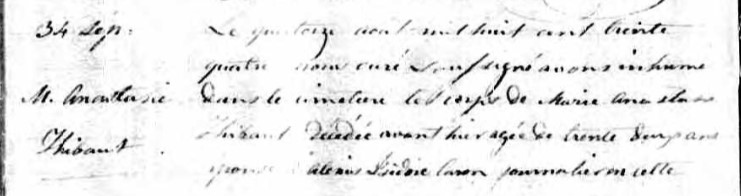 34 Sep. Le quatorze aout mil huit cent trente
quatre nous curé soussigné avons inhumé
M. Anastasie dans le cimetiere le corps de Marie Anastasie
Thibaut Thibaut décédée avant hier agée de trente deux ans
épouse d'Alexis Isidore Caron journalier en cette